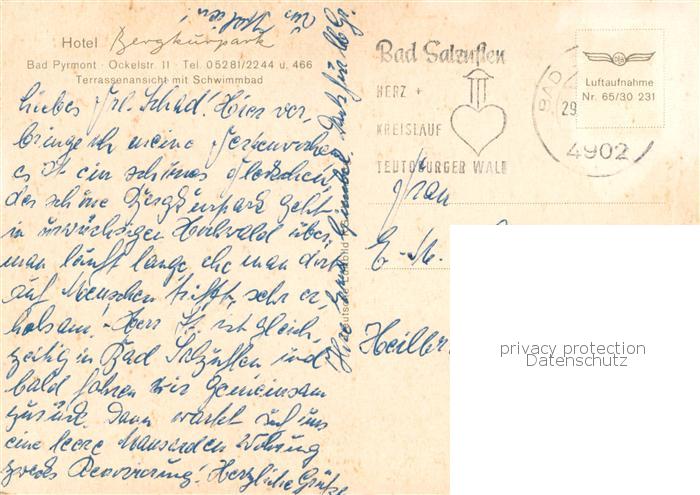 Hotel Bergkurpark
Bad Pyrmont · Ockelstr. 11 · Tel. 05281/2244 u. 466
Terrassenansicht mit Schwimmbad
Liebes Frl. Schad! Hier ver
bringe ich meine Ferienwochen
es ist ein schönes Fleckchen,
der schöne Bergkurpark geht
in urwüchsigen Hochwald über,
man läuft lange ehe man dort
auf Menschen trifft, sehr er
holsam! Herr St. ist gleich
zeitig in Bad Salzuflen, und
bald fahren wir gemeinsam
zurück. Dann wartet auf uns
eine leere Mansarden Wohnung
zwecks Renovierung! Herzliche Grüße
Ihre Dank für lb Gr.
Bad Salzuflen
HERZ +
KREISLAUF
TEUTOBURGER WALD
BAD
29.
4902
Luftaufnahme
Nr. 65/30 231
Frau
E.
Heilbr
privacy protection
Datenschutz